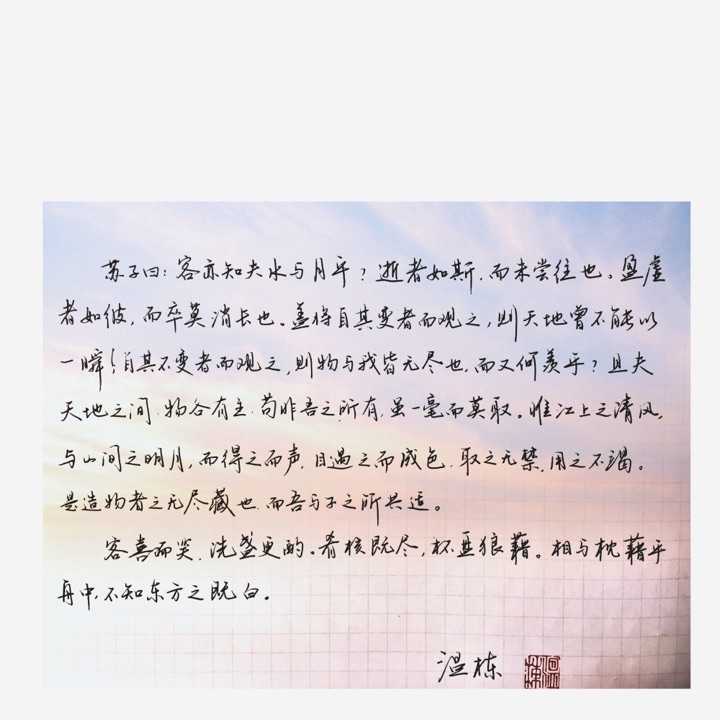 苏子曰：客亦知夫水与月乎？逝者如斯，而未尝往也。盈虚
者如彼，而卒莫消长也。盖将自其变者而观之，则天地曾不能以
一瞬；自其不变者而观之，则物与我皆无尽也，而又何羡乎？且夫
天地之间，物各有主，苟非吾之所有，虽一毫而莫取。惟江上之清风，
与山间之明月，而得之而声，目遇之而成色，取之无禁，用之不竭。
是造物者之无尽藏也，而吾与子之所共适。
客喜而笑，洗盏更酌。肴核既尽，杯盘狼藉。相与枕藉乎
舟中，不知东方之既白。
温栋
温栋